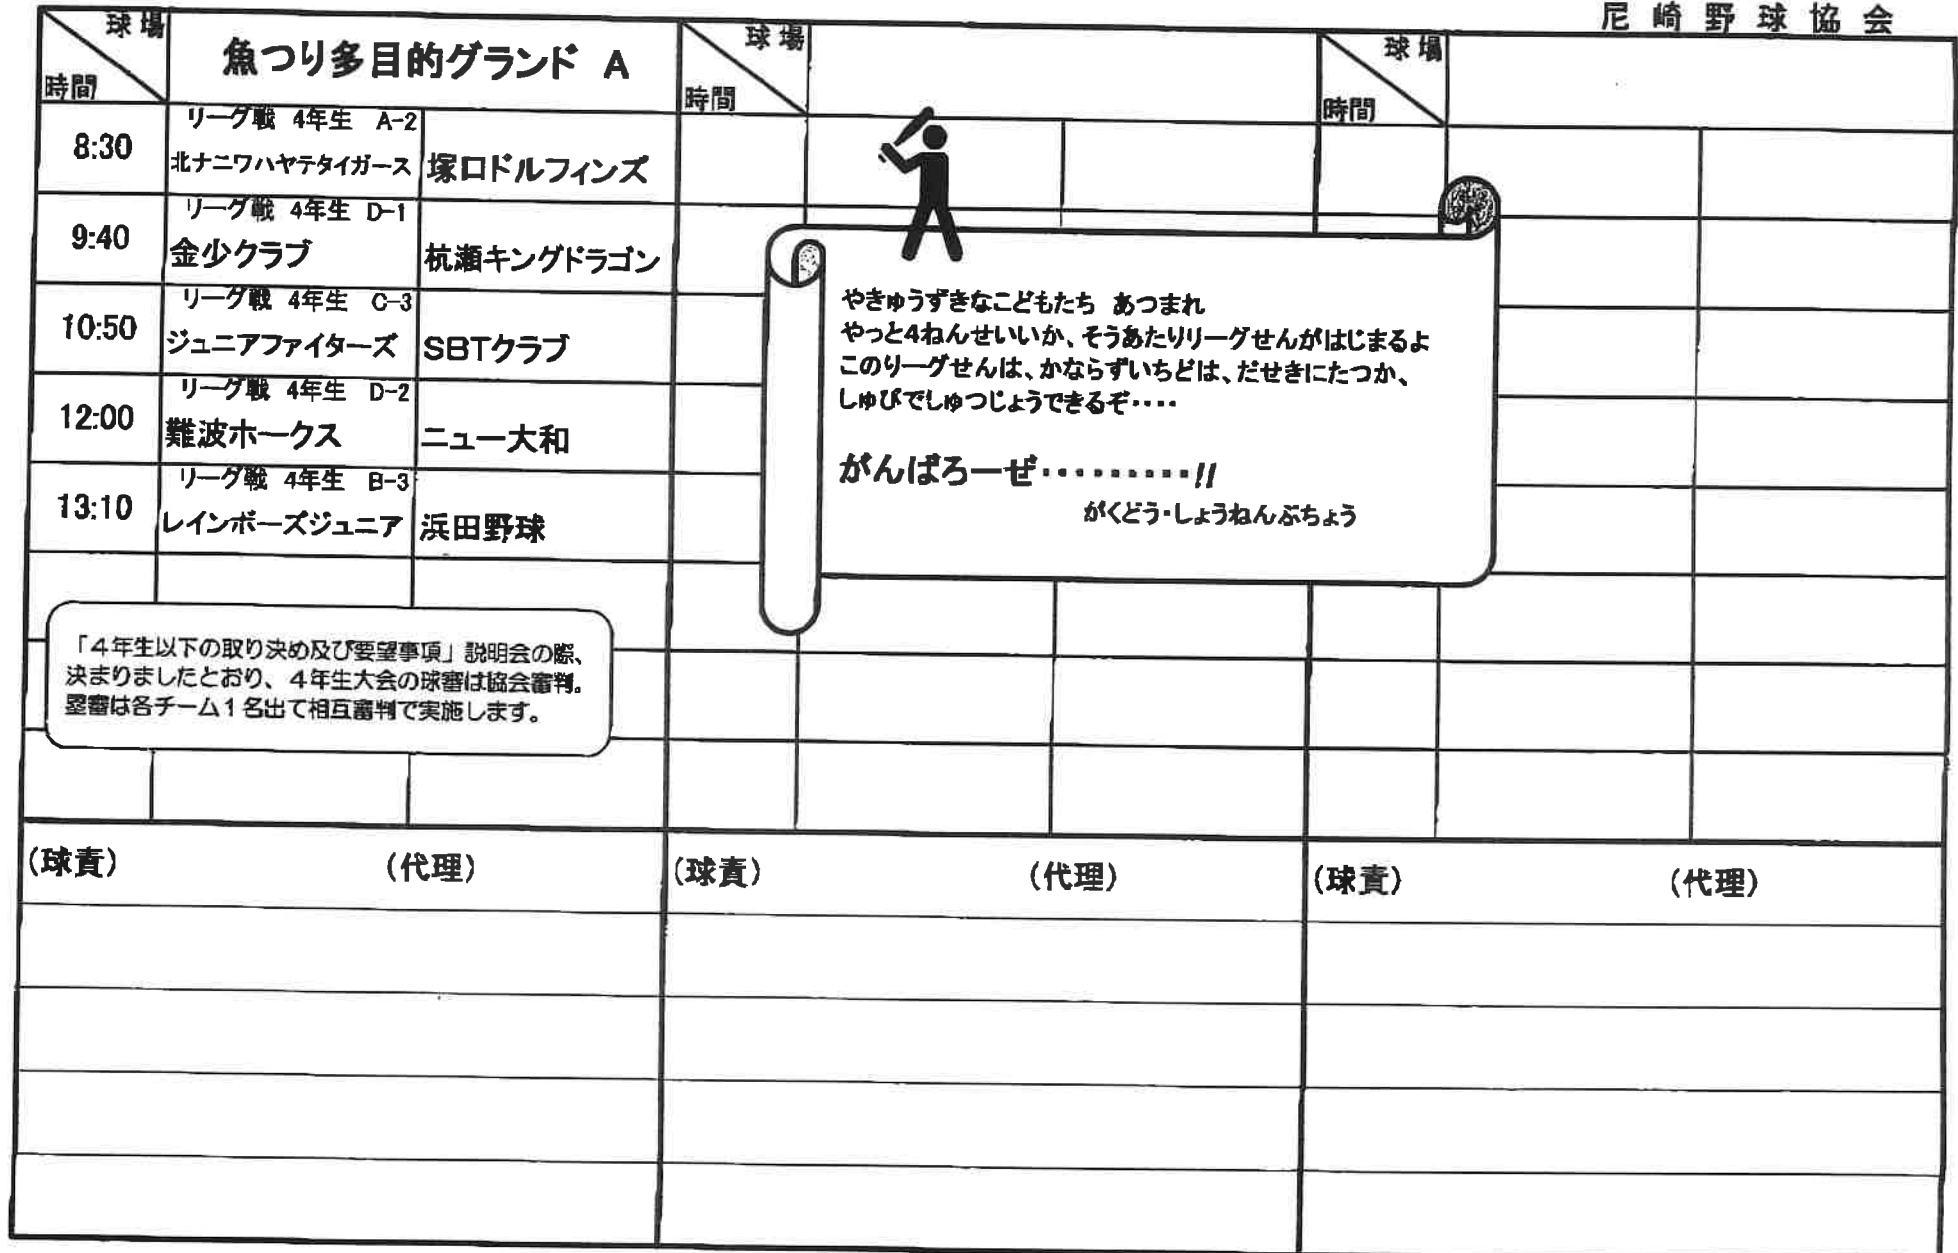 尼崎野球協会
球場
時間
魚つり多目的グランド A
球場
時間
球場
時間
8:30
リーグ戦 4年生 A-2
北ナニワハヤテタイガース
塚口ドルフィンズ
9:40
リーグ戦 4年生 D-1
金少クラブ
杭瀬キングドラゴン
10:50
リーグ戦 4年生 C-3
ジュニアファイターズ
SBTクラブ
12:00
リーグ戦 4年生 D-2
難波ホークス
ニュー大和
13:10
リーグ戦 4年生 B-3
レインボーズジュニア
浜田野球
やきゅうずきなこどもたち あつまれ
やっと4ねんせいいか、そうあたりリーグせんがはじまるよ
このリーグせんは、かならずいちどは、だせきにたつか、
しゅびでしゅつじょうできるぞ・・・・
がんばろーぜ・・・・・・・・・!!
がくどう・しょうねんぶちょう
「4年生以下の取り決め及び要望事項」説明会の際、
決まりましたとおり、4年生大会の球審は協会審判。
塁審は各チーム1名出て相互審判で実施します。
(球責)
(代理)
(球責)
(代理)
(球責)
(代理)